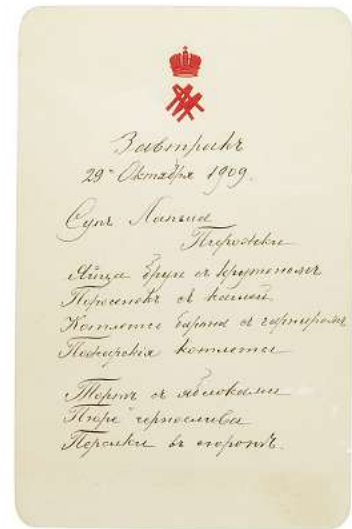 Завтракъ
29го Октября 1909.
Супъ Лапша
Пирожки
Яйца съ крутономъ
Поросенокъ съ кашей
Котлеты барана съ гарниромъ
Пожарскія котлеты
Тортъ съ яблоками
Пюре чернослива
Персики въ сиропѣ.